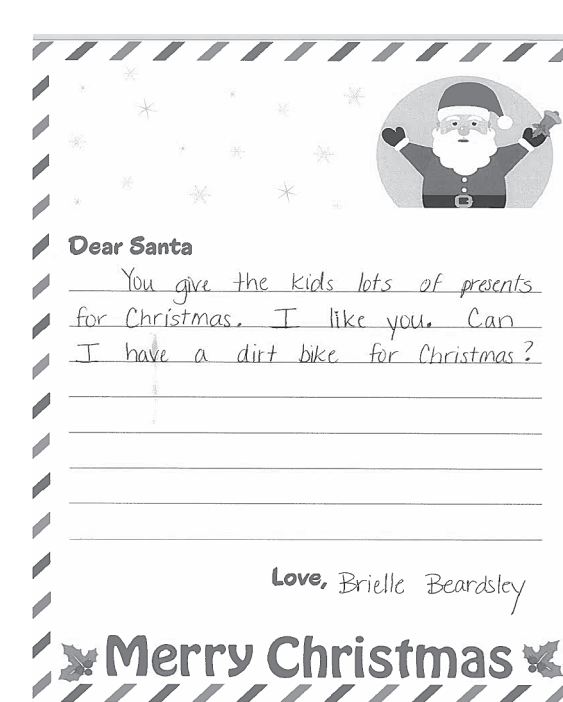 Dear Santa
You give the kids lots of presents
for Christmas. I like you. Can
I have a dirt bike for Christmas?
Love, Brielle Beardsley
Merry Christmas